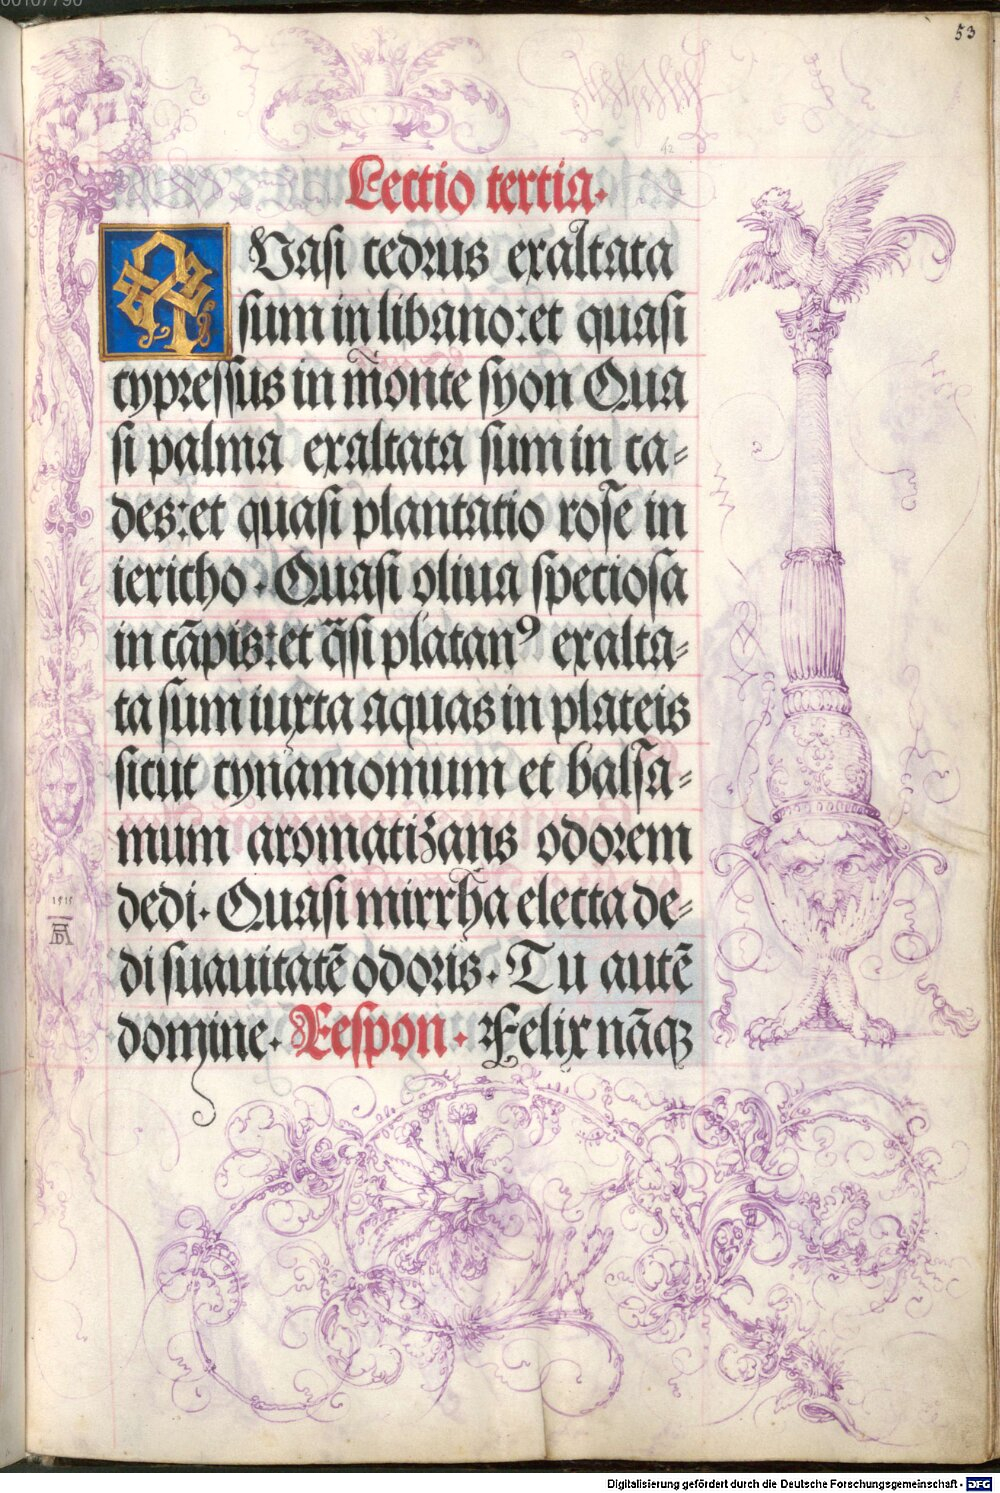 00107790
53
42
Lectio tertia.
QVasi cedrus exaltata
sum in libano: et quasi
cypressus in monte syon Qua
si palma exaltata sum in ca-
des: et quasi plantatio rose in
iericho. Quasi oliua speciosa
in cāpis: et q̄si platanꝰ exalta-
ta sum iuxta aquas in plateis
sicut cynamomum et balsa-
mum aromatizans odorem
dedi. Quasi mirrha electa de-
di suauitatē odoris. Tu autē
domine. Respon. Felix nāqꝫ
1515
AD
Digitalisierung gefördert durch die Deutsche Forschungsgemeinschaft - DFG